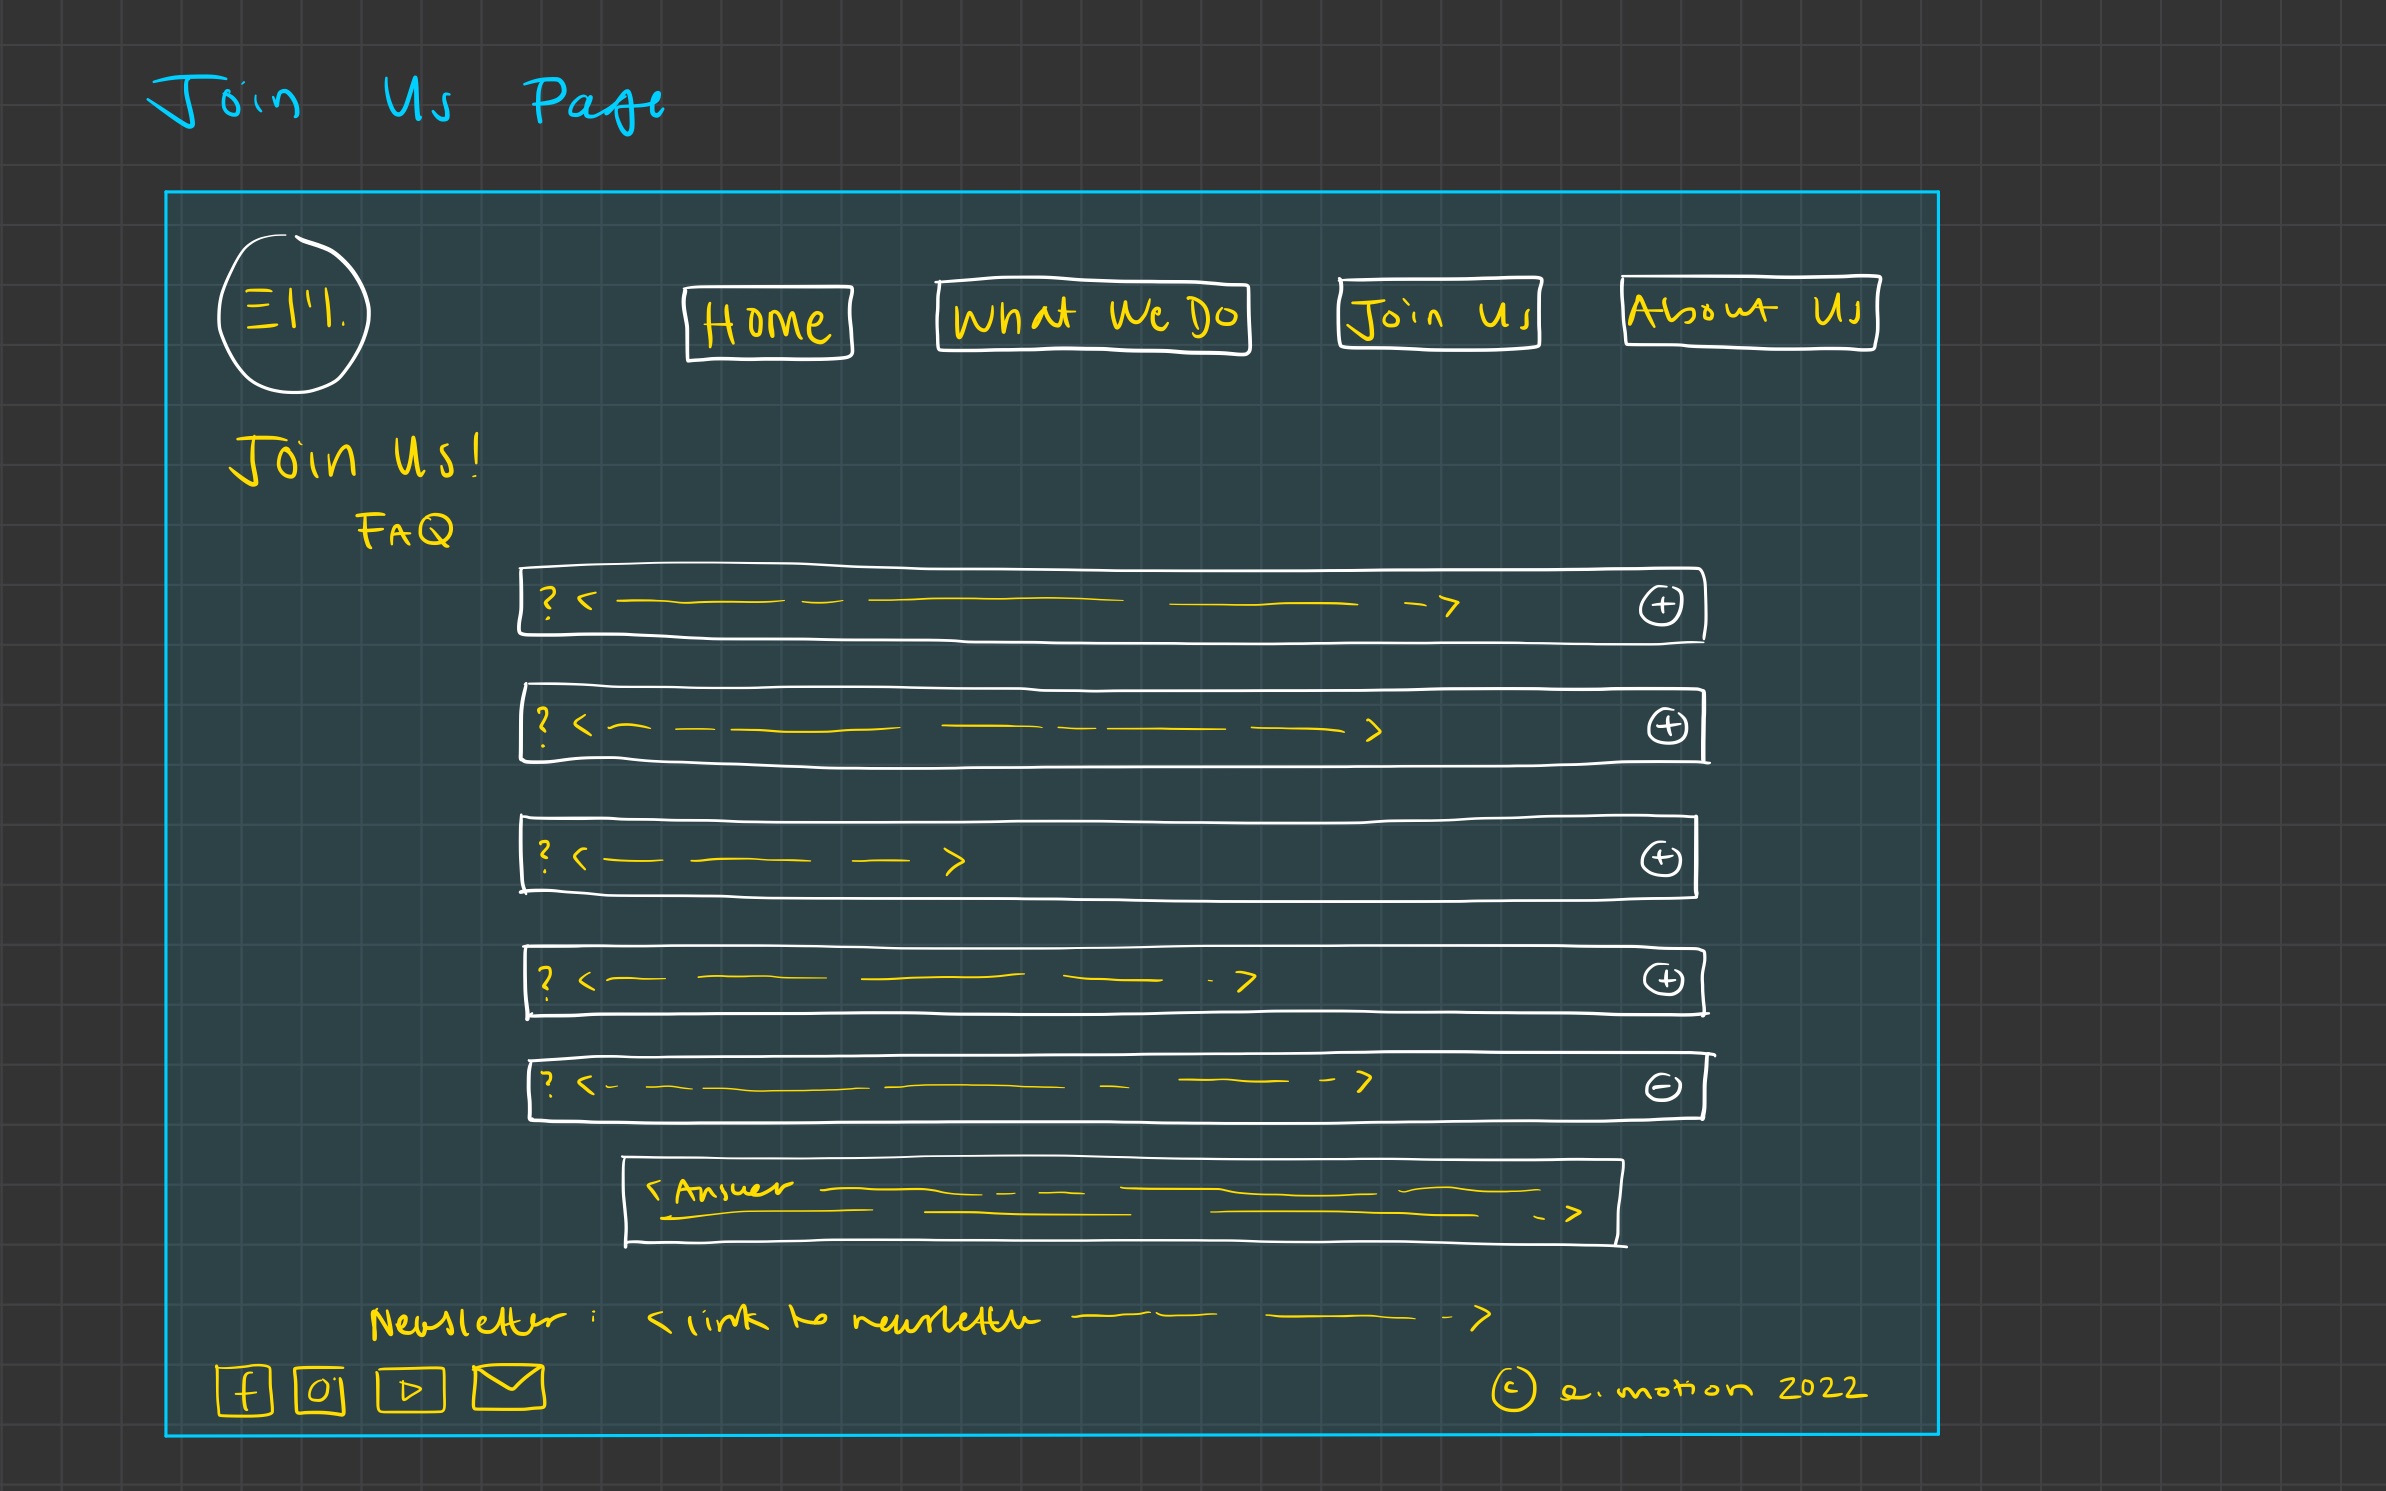 Join Us Page
Home
What We Do
Join Us
About Us
Join Us!
FAQ
? < >
? < >
? < >
? < >
? < >
< Answer >
Newsletter : < link to newsletter >
© e.motion 2022